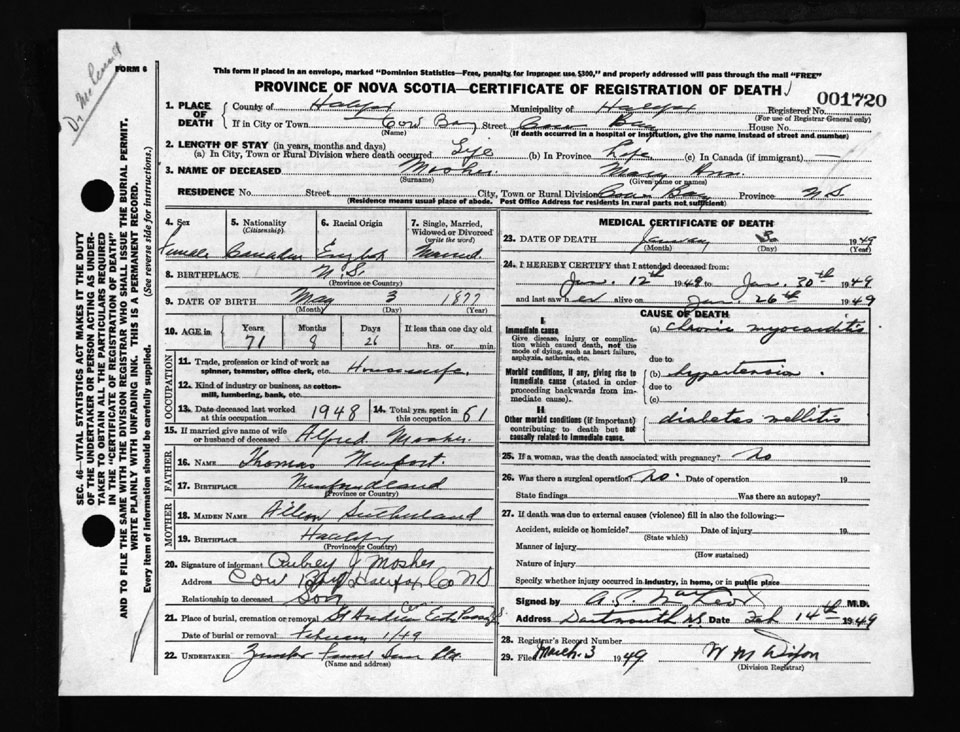 Dr.
FORM 6
This form if placed in an envelope, marked "Dominion Statistics—Free, penalty for improper use, $300," and properly addressed will pass through the mail "FREE"
PROVINCE OF NOVA SCOTIA—CERTIFICATE OF REGISTRATION OF DEATH
001720
1. PLACE OF DEATH County of Halifax Municipality of Halifax Registered No.
(For use of Registrar General only)
If in City or Town Cow Bay Street Cow Bay House No.
(Name) (If death occurred in a hospital or institution, give the name instead of street and number)
2. LENGTH OF STAY (in years, months and days)
(a) In City, Town or Rural Division where death occurred Life (b) In Province Life (c) In Canada (if immigrant) —
3. NAME OF DECEASED Mosher Mary Ann
(Surname) (Given name or names)
RESIDENCE No. Street City, Town or Rural Division Cow Bay Province N.S.
(Residence means usual place of abode. Post Office Address for residents in rural parts not sufficient)
4. Sex 5. Nationality (Citizenship) 6. Racial Origin 7. Single, Married, Widowed or Divorced (write the word)
Female Canadian English Married
8. BIRTHPLACE N.S.
(Province or Country)
9. DATE OF BIRTH May 3 1877
(Month) (Day) (Year)
10. AGE in Years Months Days If less than one day old
71 8 26 hrs. or min.
OCCUPATION
11. Trade, profession or kind of work as spinner, teamster, office clerk, etc. Housewife
12. Kind of industry or business, as cotton-mill, lumbering, bank, etc.
13. Date deceased last worked at this occupation 1948 14. Total yrs. spent in this occupation 61
15. If married give name of wife or husband of deceased Alfred Mosher
FATHER
16. NAME Thomas Newport
17. BIRTHPLACE Newfoundland
(Province or Country)
MOTHER
18. MAIDEN NAME Ellen Sutherland
19. BIRTHPLACE Halifax
(Province or Country)
20. Signature of informant Aubrey J Mosher
Address Cow Bay Halifax Co NS
Relationship to deceased Son
21. Place of burial, cremation or removal St Andrew Cem
Date of burial or removal February 1/49
22. UNDERTAKER
(Name and address)
MEDICAL CERTIFICATE OF DEATH
23. DATE OF DEATH January 30 1949
(Month) (Day) (Year)
24. I HEREBY CERTIFY that I attended deceased from:
Jan. 12th 1949 to Jan. 30th 1949
and last saw her alive on Jan. 26th 1949
CAUSE OF DEATH
I. Immediate cause
Give disease, injury or complication which caused death, not the mode of dying, such as heart failure, asphyxia, asthenia, etc.
(a) Chronic myocarditis
due to
Morbid conditions, if any, giving rise to immediate cause (stated in order proceeding backwards from immediate cause).
(b) hypertension.
due to
(c)
II. Other morbid conditions (if important) contributing to death but not causally related to immediate cause.
diabetes mellitis
25. If a woman, was the death associated with pregnancy? No
26. Was there a surgical operation? No. Date of operation 19
State findings Was there an autopsy?
27. If death was due to external causes (violence) fill in also the following:—
Accident, suicide or homicide? Date of injury 19
(State which)
Manner of injury
(How sustained)
Nature of injury
Specify whether injury occurred in industry, in home, or in public place
Signed by M.D.
Address Dartmouth N.S. Date Feb 14th 1949
28. Registrar's Record Number
29. Filed March 3 1949 W M Dixon
(Division Registrar)
SEC. 46—VITAL STATISTICS ACT MAKES IT THE DUTY
OF THE UNDERTAKER OR PERSON ACTING AS UNDER-
TAKER TO OBTAIN ALL THE PARTICULARS REQUIRED
IN THE "CERTIFICATE OF REGISTRATION OF DEATH"
AND TO FILE THE SAME WITH THE DIVISION REGISTRAR WHO SHALL ISSUE THE BURIAL PERMIT.
WRITE PLAINLY WITH UNFADING INK. THIS IS A PERMANENT RECORD.
Every item of information should be carefully supplied. (See reverse side for instructions.)